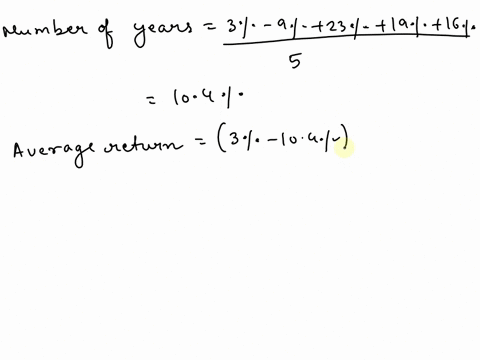 Number of years = 3% - 9% + 23% + 19% + 16%
5
= 10.4%
Average return = (3% - 10.4%)